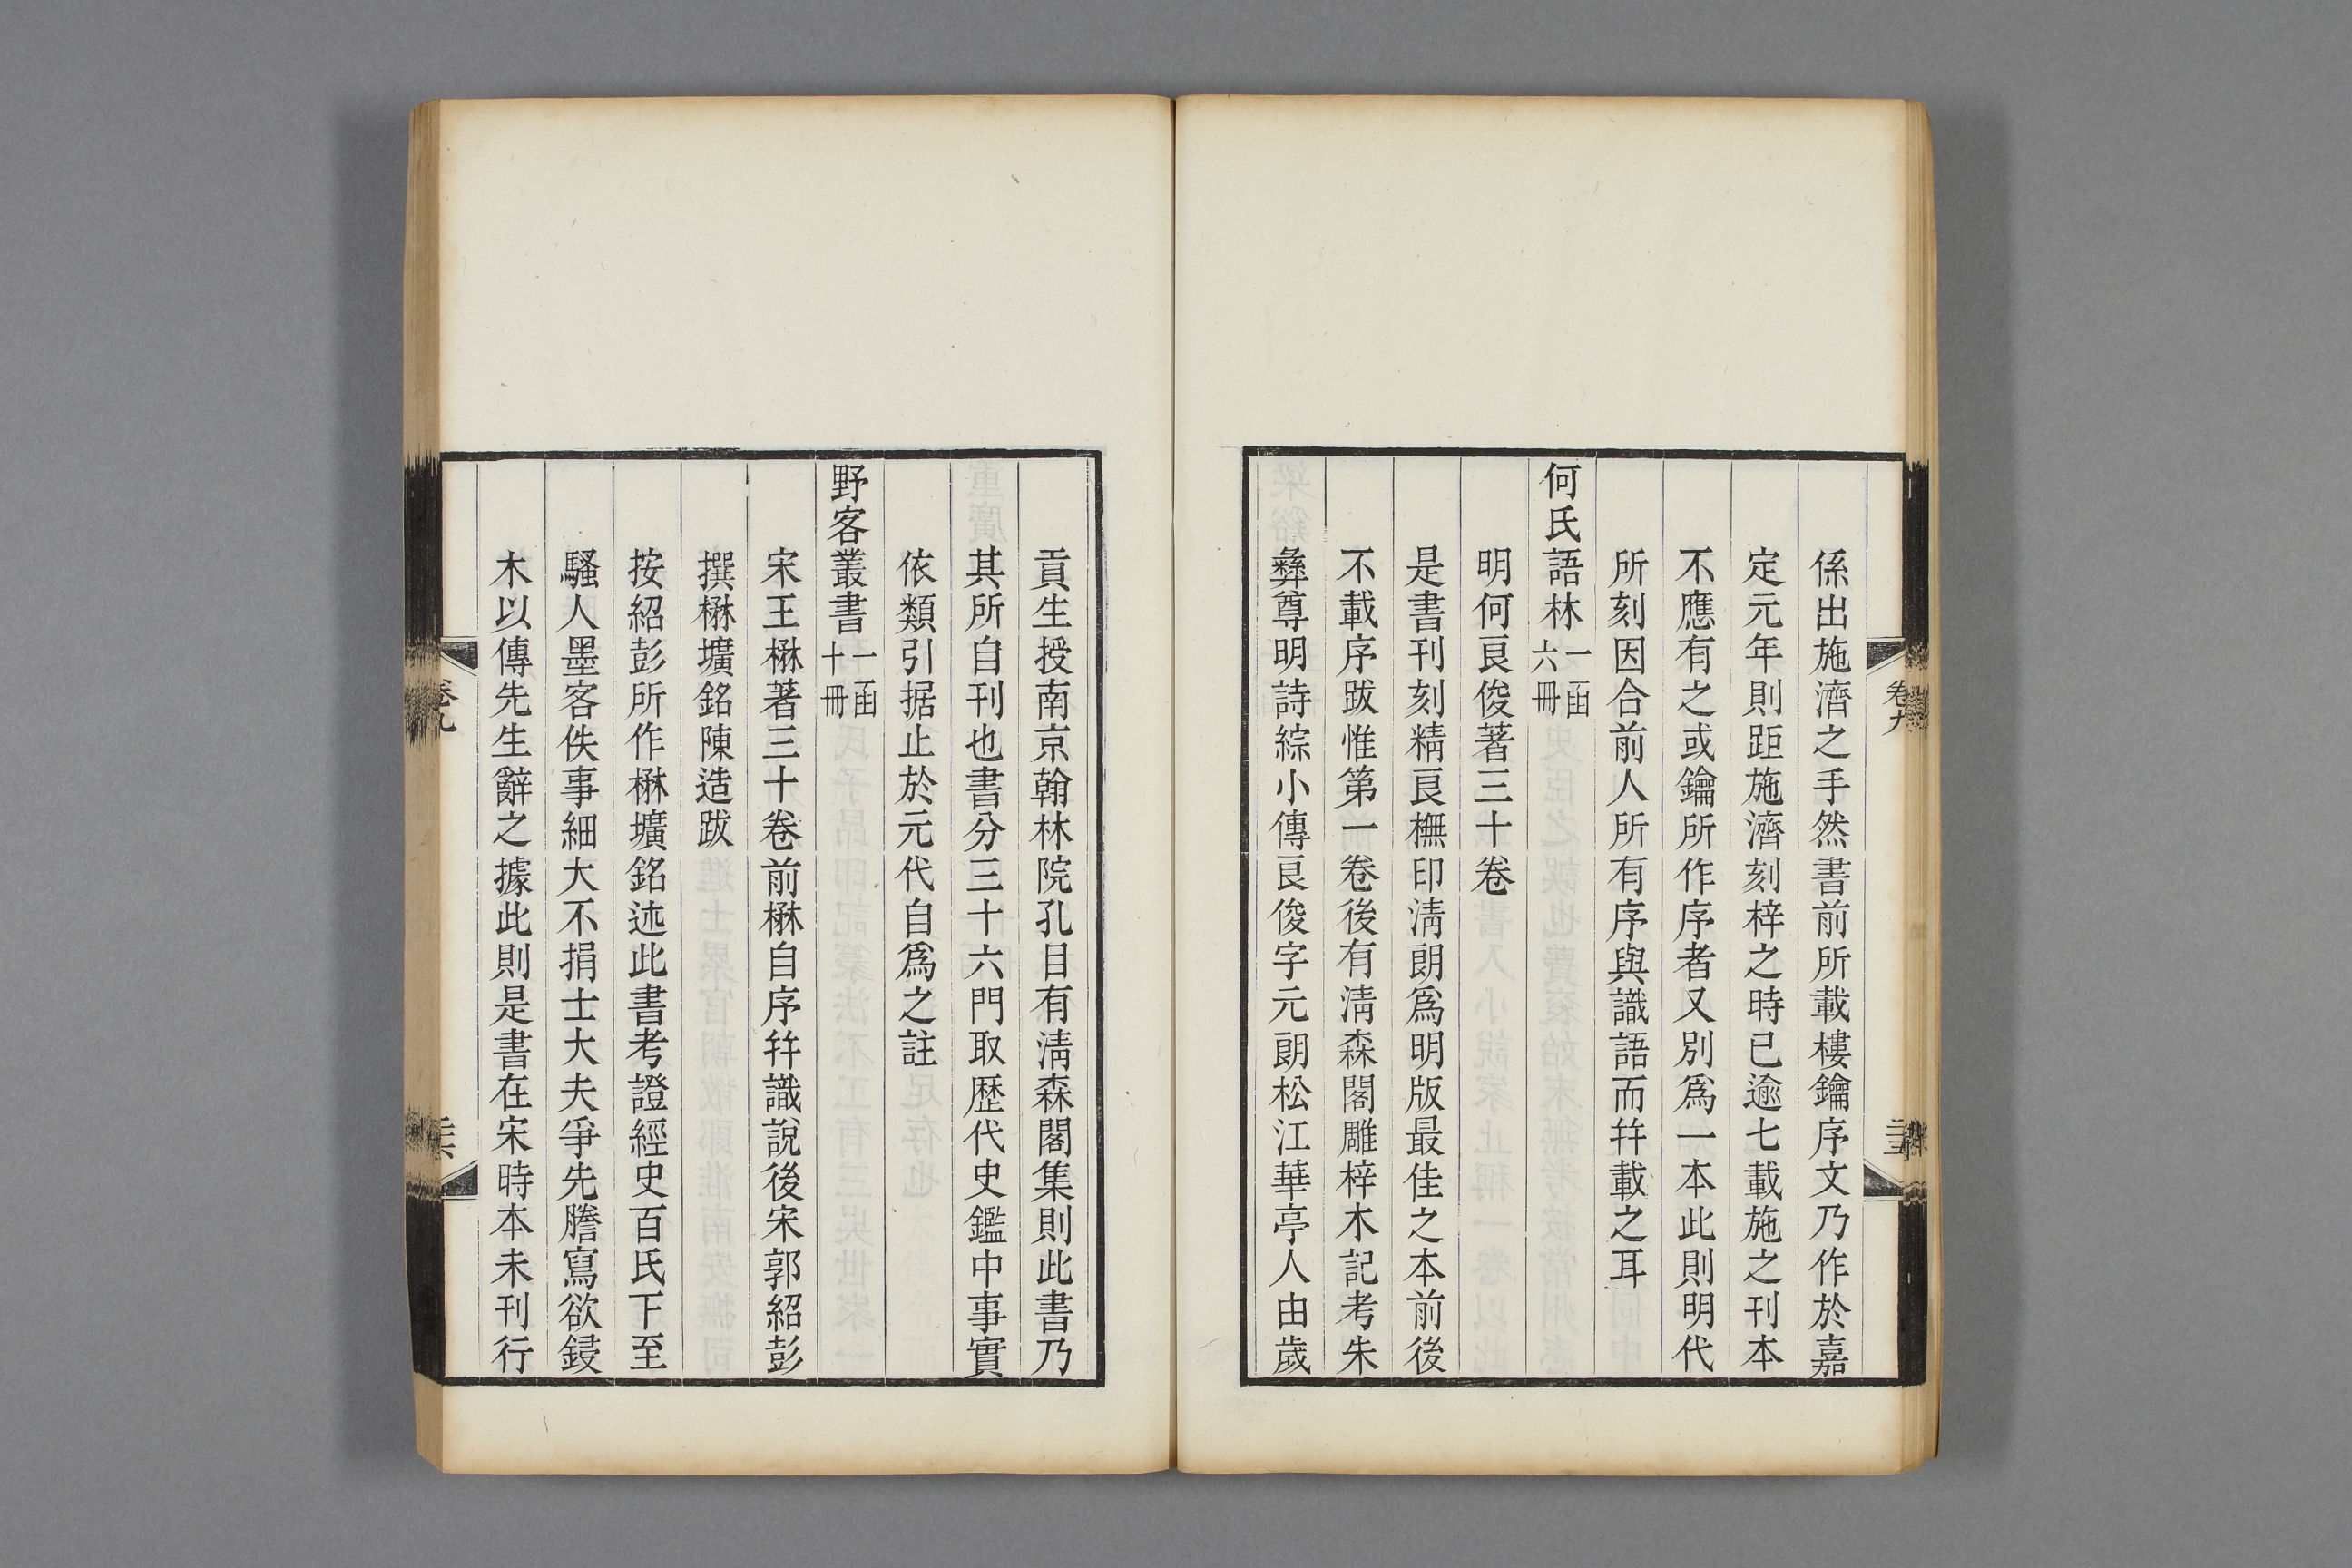 係出施濟之手然書前所載樓鑰序文乃作於嘉
定元年則距施濟刻梓之時已逾七載施之刊本
不應有之或鑰所作序者又別爲一本此則明代
所刻因合前人所有序與識語而幷載之耳
何氏語林一函六冊
明何良俊著三十卷
是書刊刻精良橅印淸朗爲明版最佳之本前後
不載序跋惟第一卷後有淸森閣雕梓木記考朱
彝尊明詩綜小傳良俊字元朗松江華亭人由歲
卷九
二十五
貢生授南京翰林院孔目有淸森閣集則此書乃
其所自刊也書分三十六門取歷代史鑑中事實
依類引据止於元代自爲之註
野客叢書一函十冊
宋王楙著三十卷前楙自序幷識說後宋郭紹彭
撰楙壙銘陳造跋
按紹彭所作楙壙銘述此書考證經史百氏下至
騷人墨客佚事細大不捐士大夫爭先謄寫欲鋟
木以傳先生辭之據此則是書在宋時本未刊行
卷九